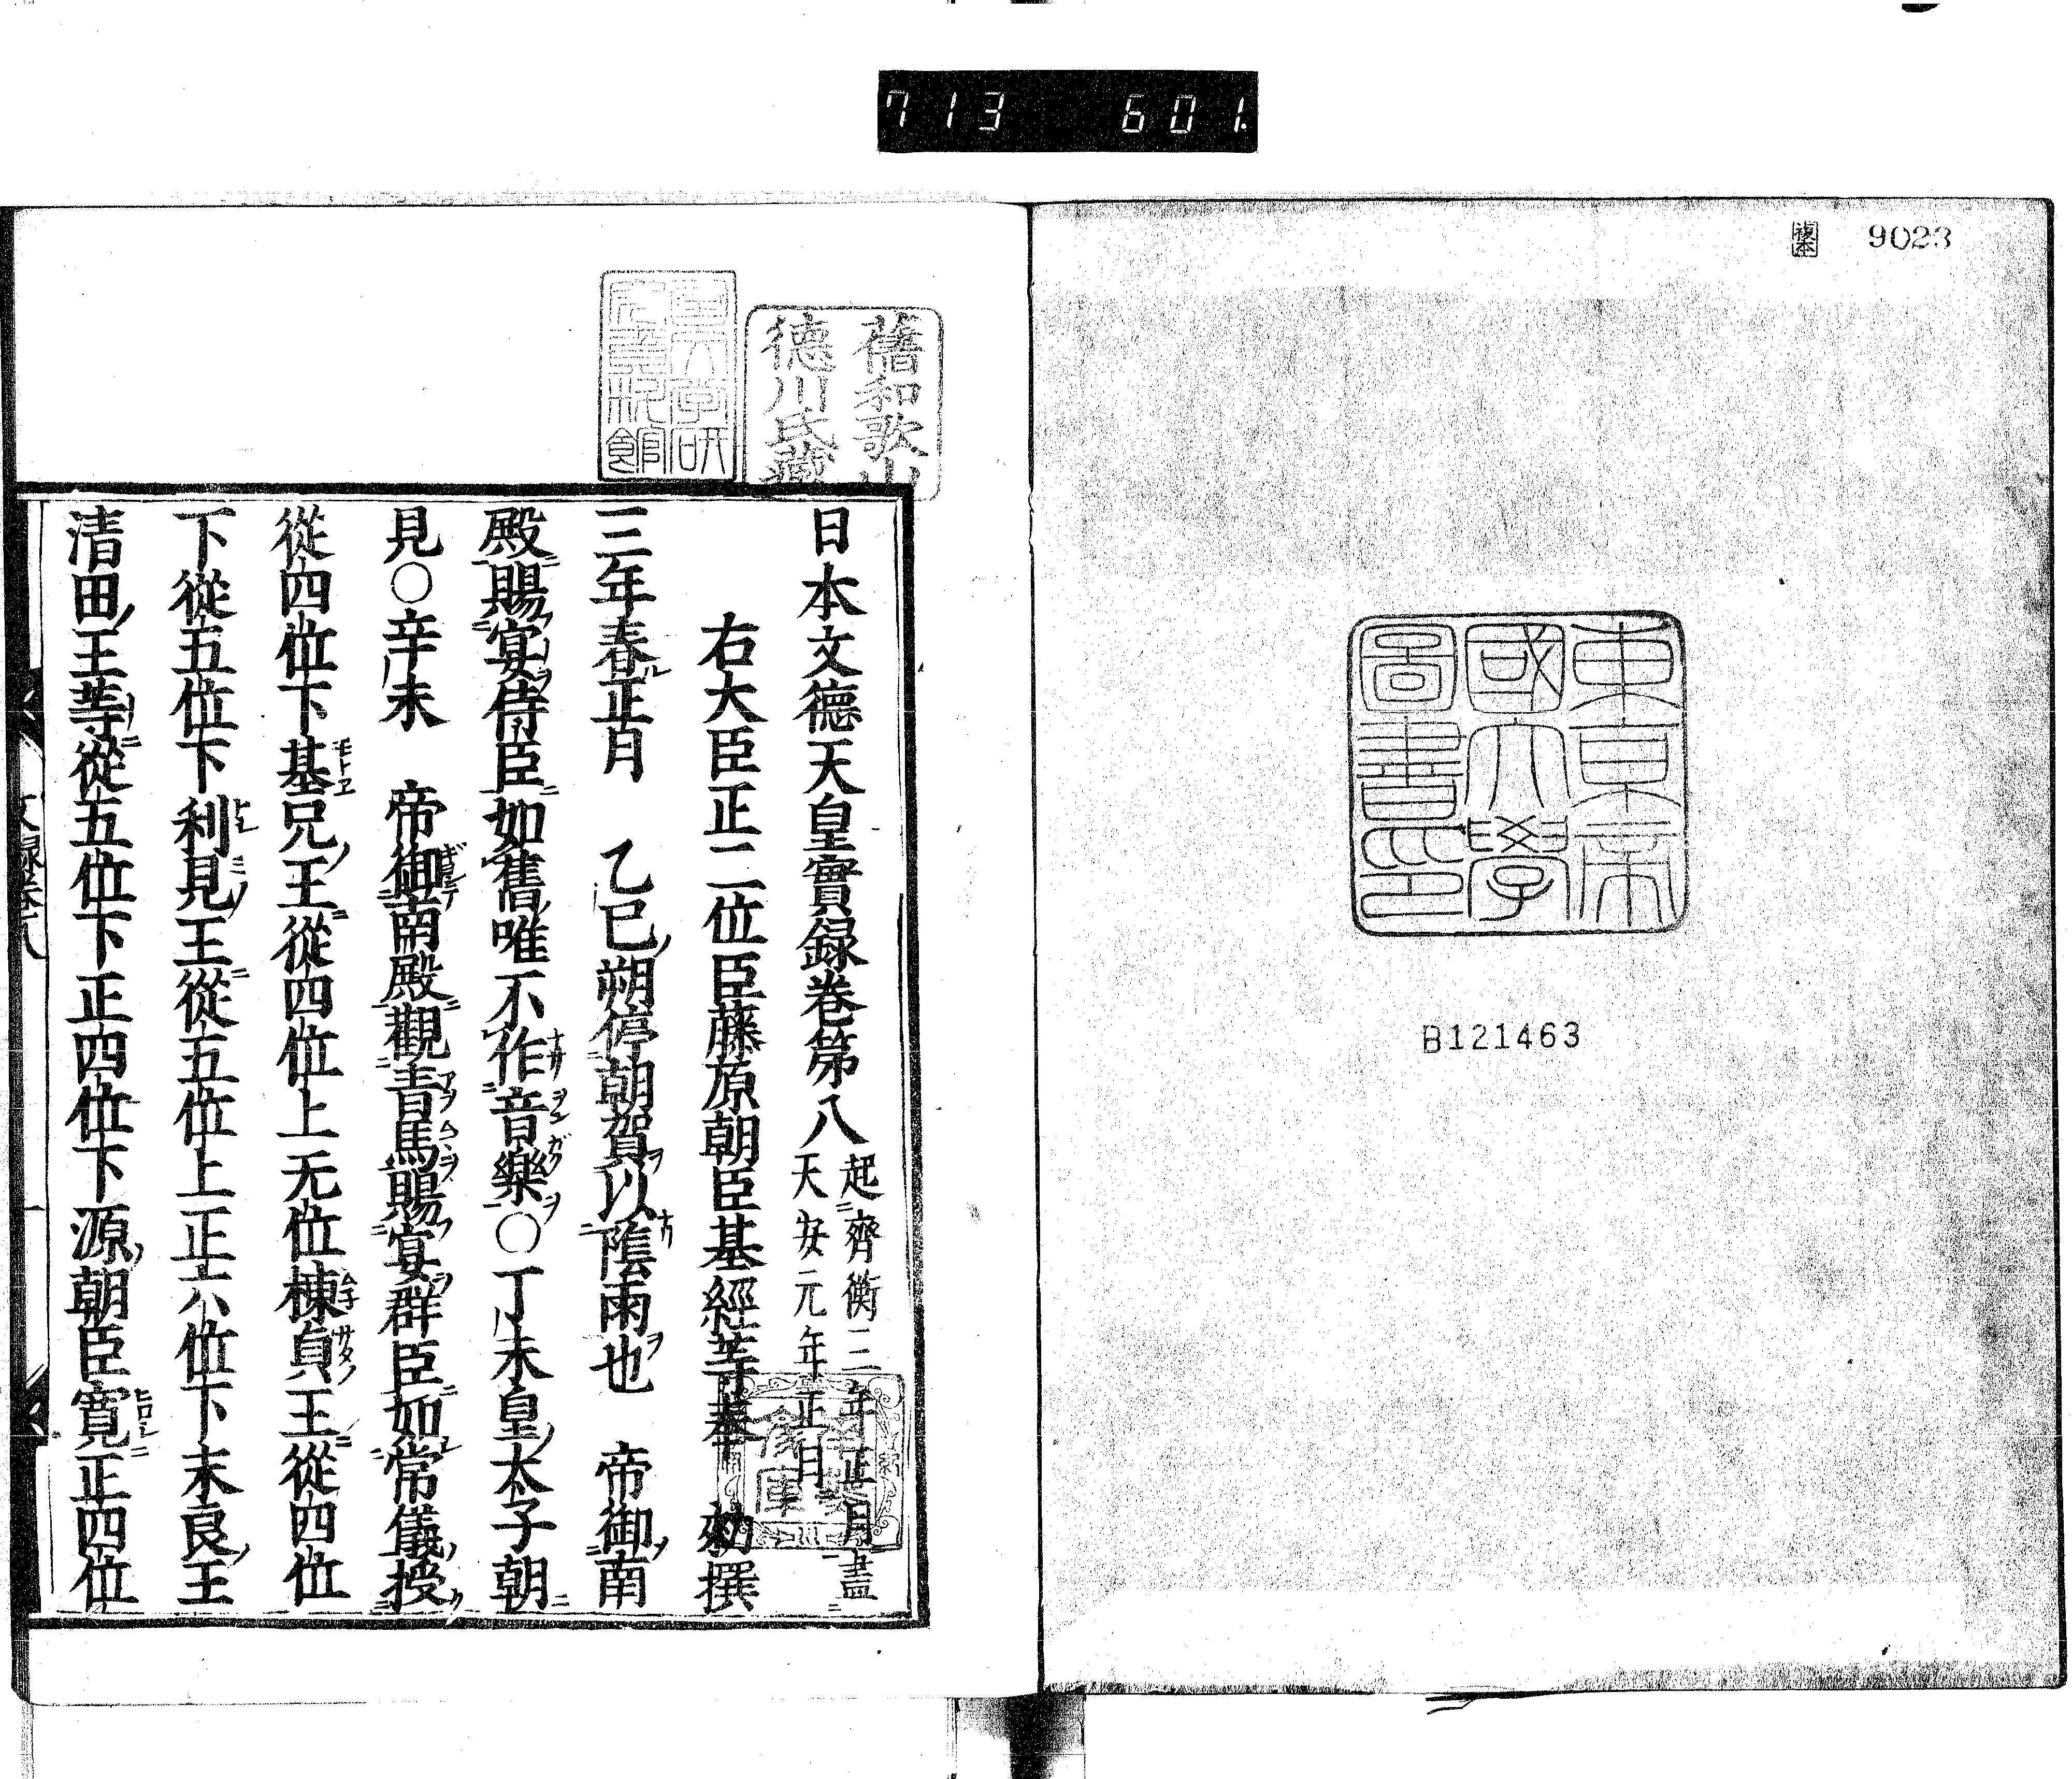 713 601.
複本 9023
東京帝
國大學
圖書印
B121463
舊和歌山
德川氏藏
日本文德天皇實錄卷第八 起齊衡三年正月盡
天安元年正月
右大臣正二位臣藤原朝臣基經等奉 勅撰
三年春正月 乙巳朔停朝賀以陰雨也 帝御南
殿賜宴侍臣如舊唯不作音樂○丁未皇太子朝
見○辛未 帝御南殿觀青馬賜宴群臣如常儀授
從四位下基兄王從四位上无位棟貞王從四位
下從五位下利見王從五位上正六位下末良王
清田王等從五位下正四位下源朝臣寬正四位